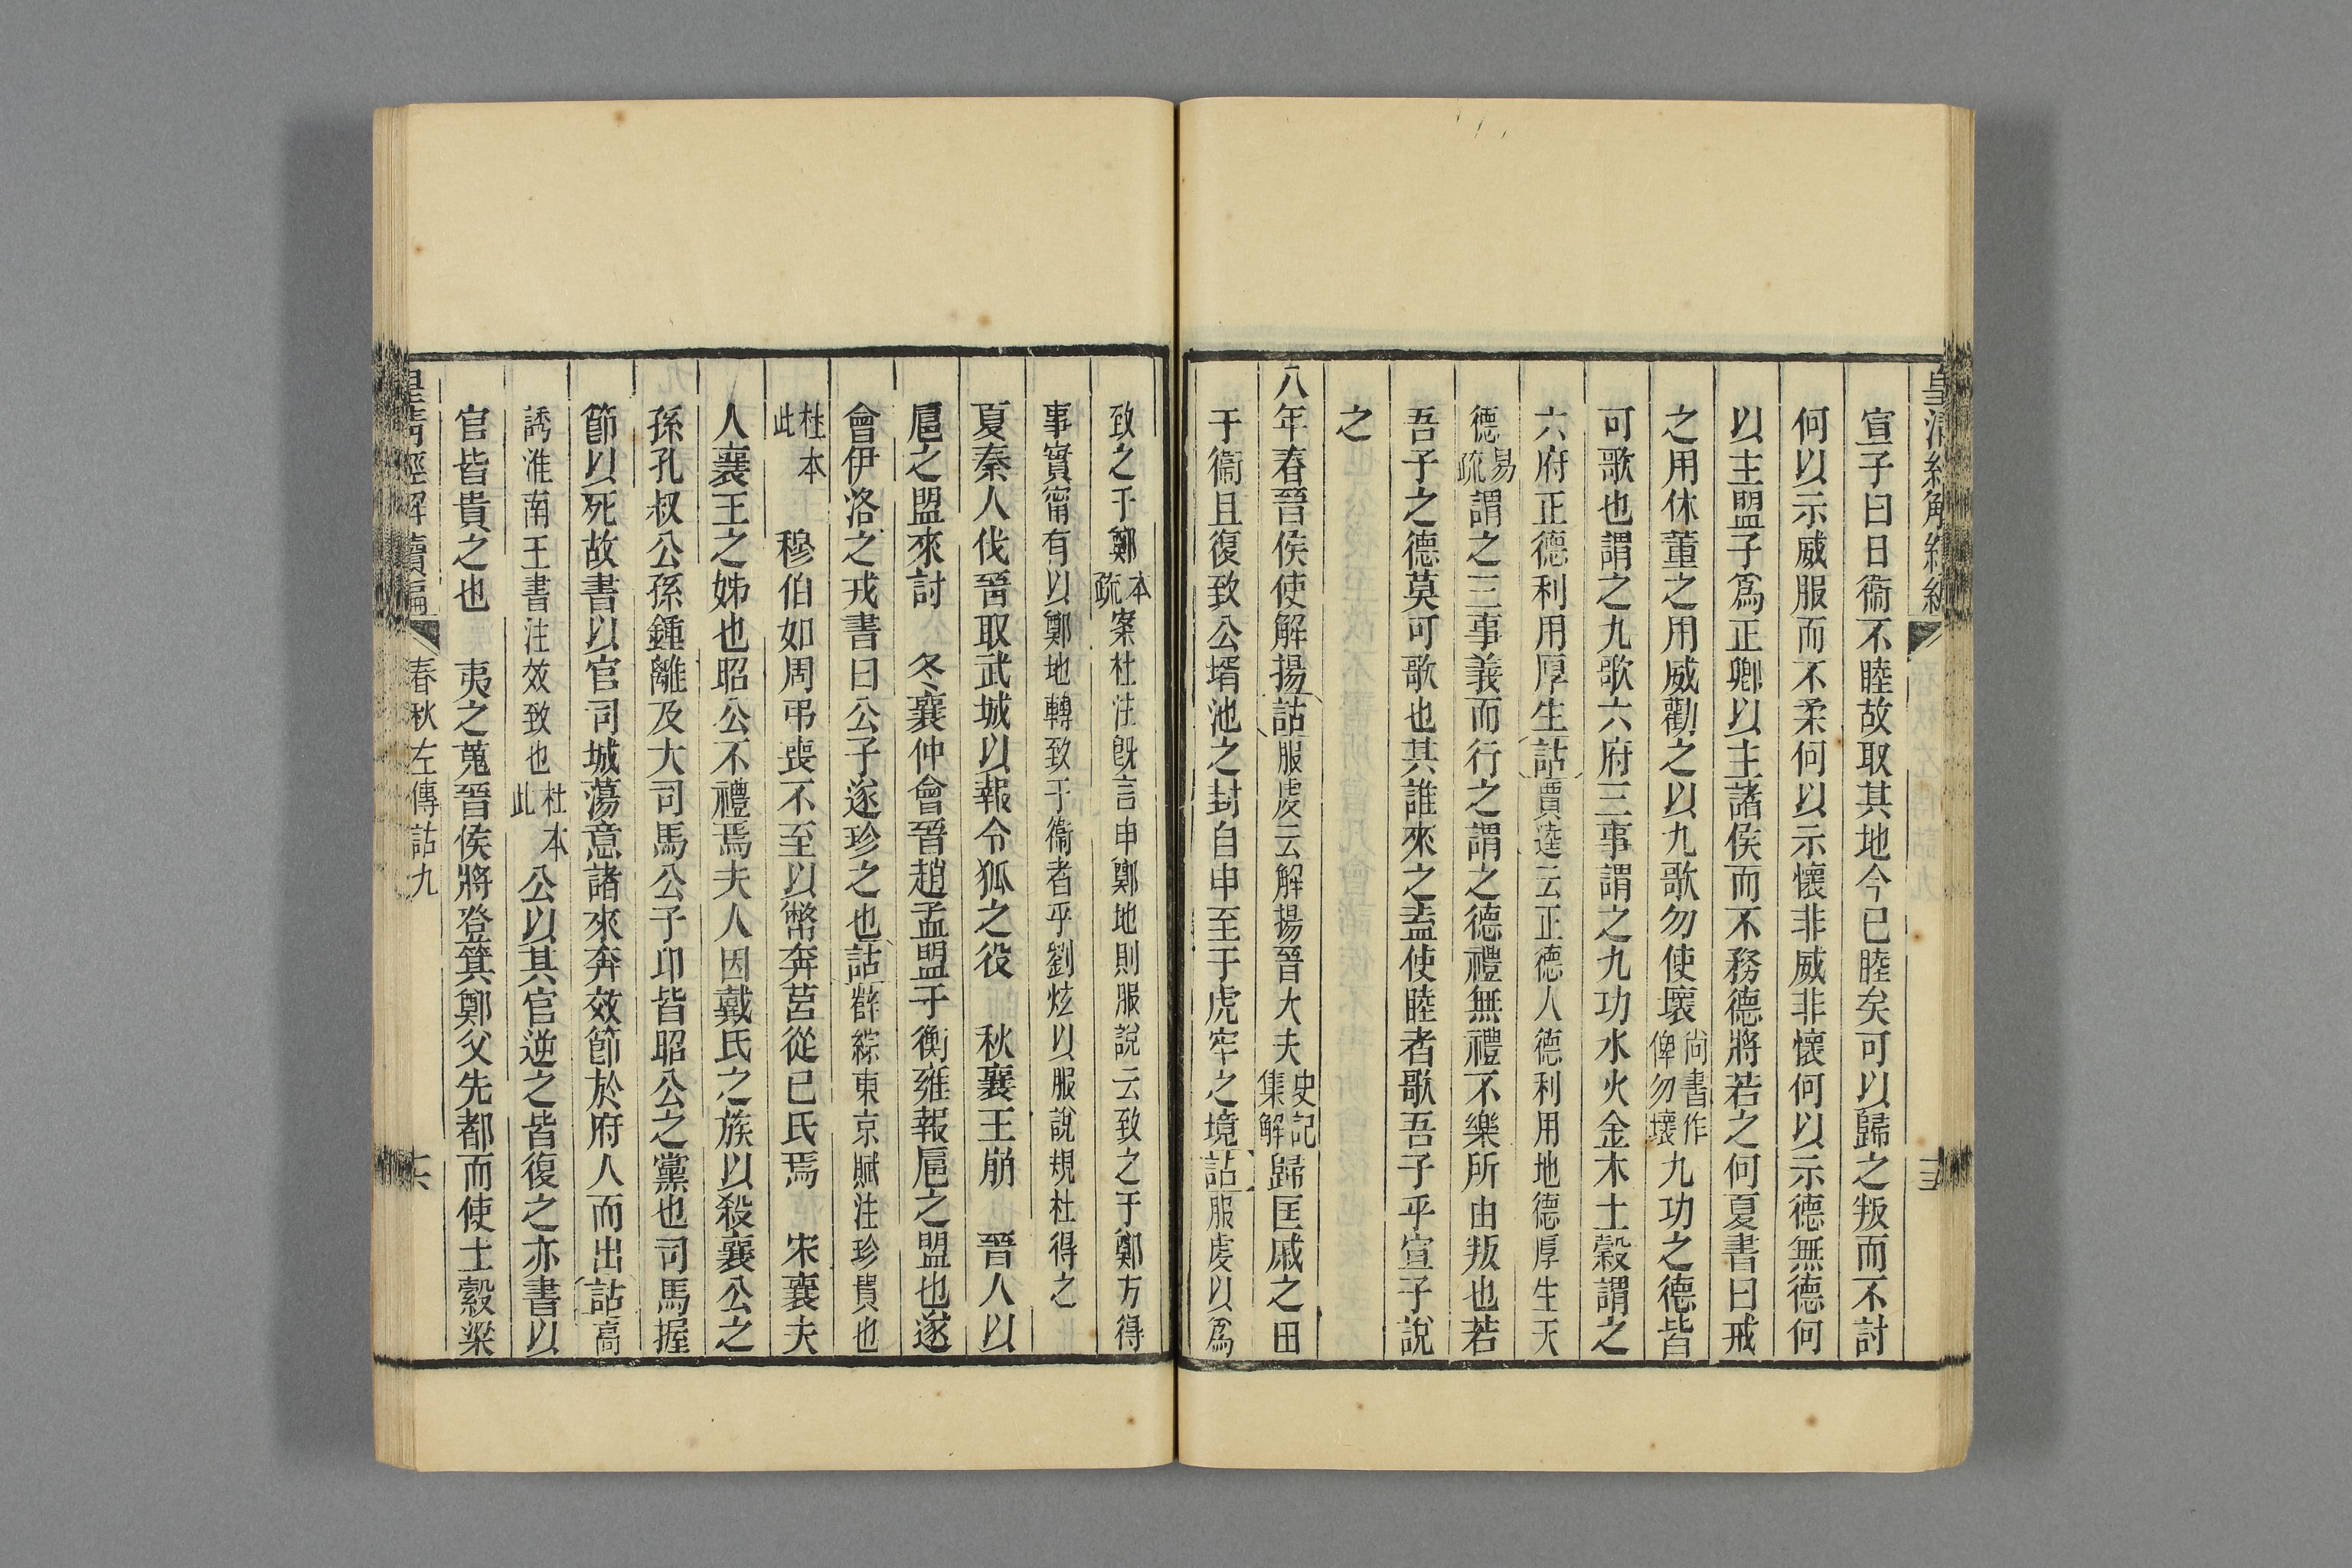 皇清經解續編
宣子曰日衞不睦故取其地今已睦矣可以歸之叛而不討
何以示威服而不柔何以示懷非威非懷何以示德無德何
以主盟子爲正卿以主諸侯而不務德將若之何夏書曰戒
之用休董之用威勸之以九歌勿使壞尚書作俾勿壞九功之德皆
可歌也謂之九歌六府三事謂之九功水火金木土穀謂之
六府正德利用厚生詁賈逵云正德人德利用地德厚生天
德易疏謂之三事義而行之謂之德禮無禮不樂所由叛也若
吾子之德莫可歌也其誰來之盍使睦者歌吾子乎宣子說
之
八年春晉侯使解揚詁服虔云解揚晉大夫史記集解歸匡戚之田
于衞且復致公壻池之封自申至于虎牢之境詁服虔以爲
致之于鄭本疏案杜注旣言申鄭地則服說云致之于鄭方得
事實甯有以鄭地轉致于衞者乎劉炫以服說規杜得之
夏秦人伐晉取武城以報令狐之役 秋襄王崩 晉人以
扈之盟來討 冬襄仲會晉趙孟盟于衡雍報扈之盟也遂
會伊洛之戎書曰公子遂珍之也詁薛綜東京賦注珍貴也
杜本此 穆伯如周弔喪不至以幣奔莒從已氏焉 宋襄夫
人襄王之姊也昭公不禮焉夫人因戴氏之族以殺襄公之
孫孔叔公孫鍾離及大司馬公子卬皆昭公之黨也司馬握
節以死故書以官司城蕩意諸來奔效節於府人而出詁高
誘淮南王書注效致也杜本此公以其官逆之皆復之亦書以
官皆貴之也 夷之蒐晉侯將登箕鄭父先都而使士縠梁
皇清經解續編 春秋左傳詁九 十六